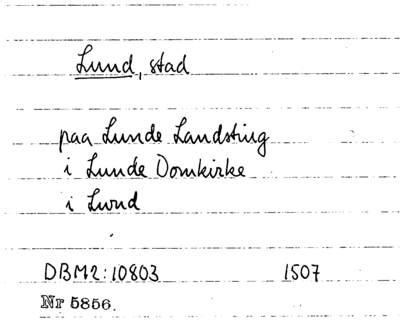 Lund, stad
paa Lunde Landsting
i Lunde Domkirke
i Lund
DBM2:10803 1507
Nr 5856.